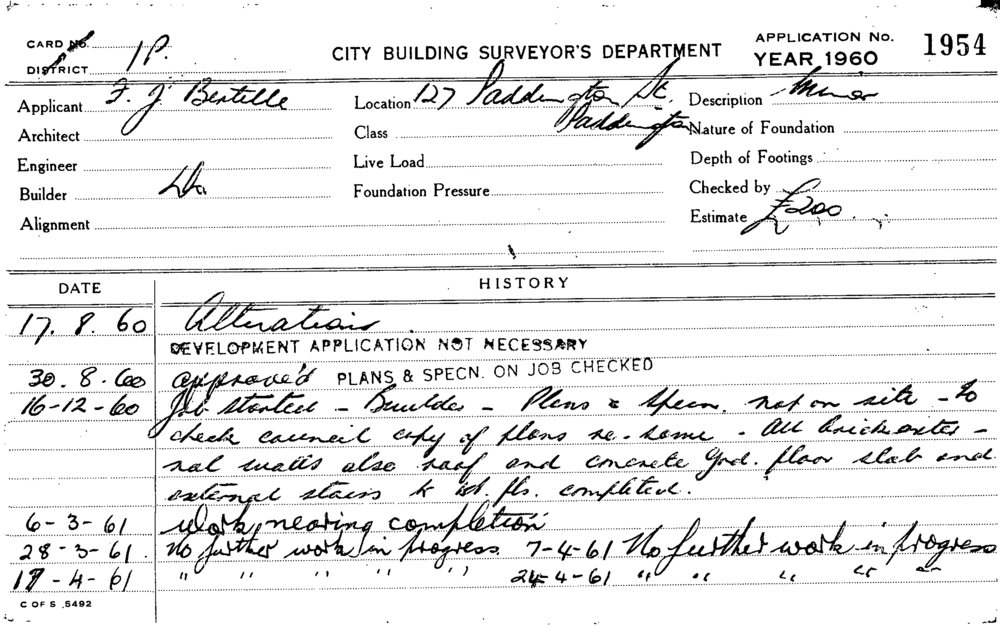 CARD No. 1P.
DISTRICT
CITY BUILDING SURVEYOR'S DEPARTMENT
APPLICATION No. 1954
YEAR 1960
Applicant F. J. Bertelle
Location 127 Paddington St. Paddington
Description Minor
Architect
Class
Nature of Foundation
Engineer
Live Load
Depth of Footings
Builder
Foundation Pressure
Checked by
Alignment
Estimate £200
DATE HISTORY
17. 8. 60 Alterations.
DEVELOPMENT APPLICATION NOT NECESSARY
30. 8. 60 approved PLANS & SPECN. ON JOB CHECKED
16-12-60 Job started - Builder - Plans & Specn. not on site - to
check council copy of plans re-same. All brick exter-
nal walls also roof and concrete grd. floor slab and
external stairs to 1st. flr. completed.
6-3-61 Work nearing completion
28-3-61. No further work in progress 7-4-61 No further work in progress
17-4-61 " " " " " 24-4-61 " " " " "
C OF S 5492